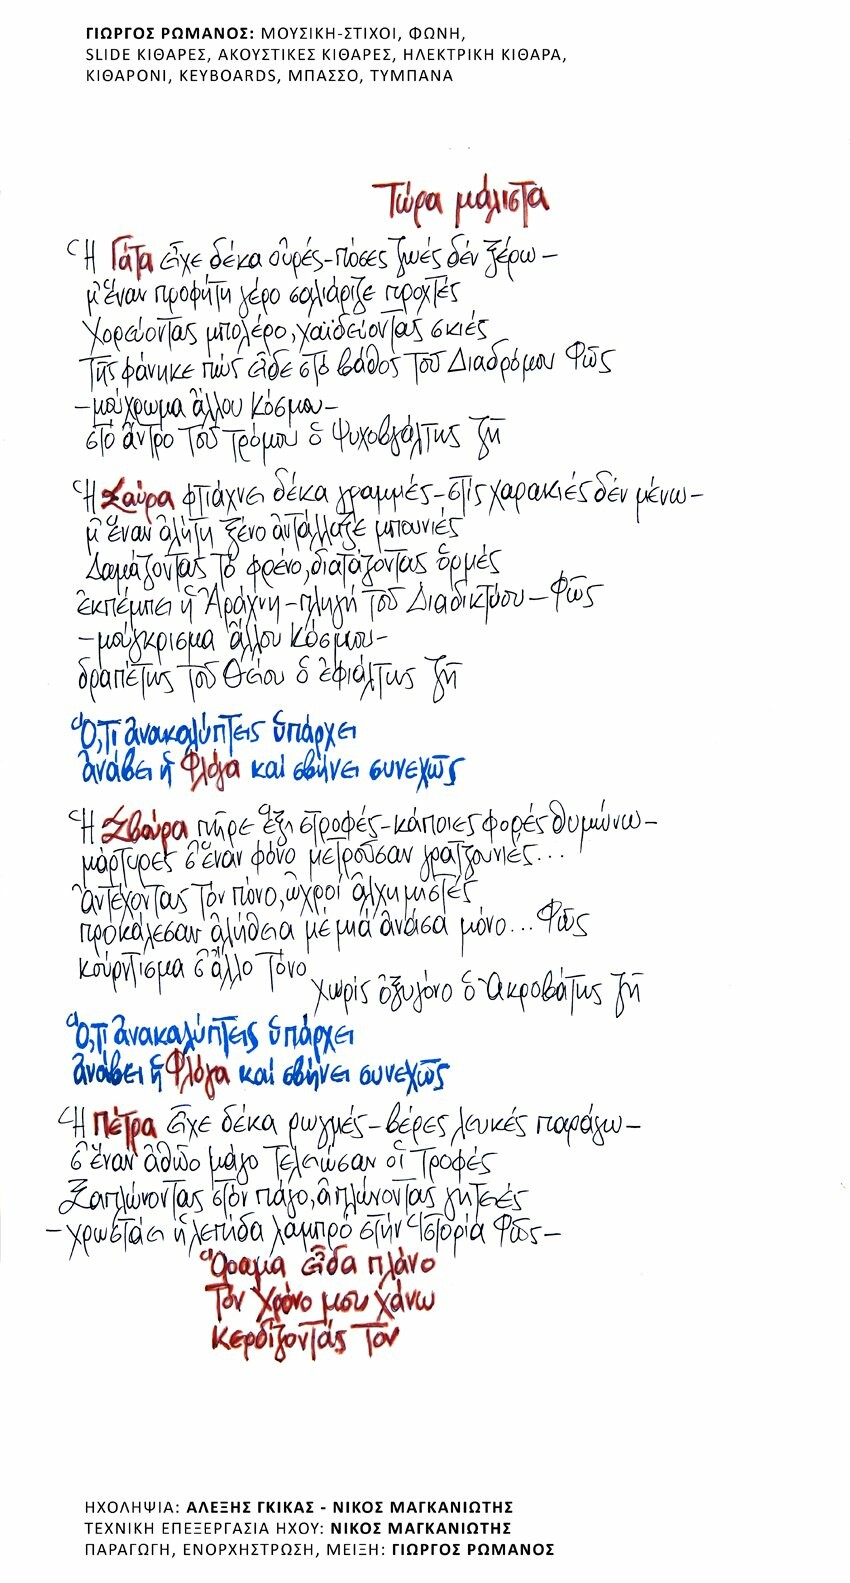 ΓΙΩΡΓΟΣ ΡΩΜΑΝΟΣ: ΜΟΥΣΙΚΗ-ΣΤΙΧΟΙ, ΦΩΝΗ,
SLIDE ΚΙΘΑΡΕΣ, ΑΚΟΥΣΤΙΚΕΣ ΚΙΘΑΡΕΣ, ΗΛΕΚΤΡΙΚΗ ΚΙΘΑΡΑ,
ΚΙΘΑΡΟΝΙ, KEYBOARDS, ΜΠΑΣΣΟ, ΤΥΜΠΑΝΑ
Τώρα μάλιστα
Ἡ Γάτα εἶχε δέκα οὐρές-πόσες ζωές δέν ξέρω-
μ' ἕναν προφήτη γέρο σαλιάριζε προχτές
χορεύοντας μπολέρο, χαϊδεύοντας σκιές
Τῆς φάνηκε πώς εἶδε στό βάθος τοῦ Διαδρόμου Φῶς
-μούχρωμα ἄλλου κόσμου-
στό ἄντρο τοῦ τρόμου ὁ Ψυχοβγάλτης ζῆ
Ἡ Σαύρα φτιάχνει δέκα γραμμές-στίς χαρακιές δέν μένω-
μ' ἕναν ἀλήτη ξένο ἀντάλλαζε μπουνιές
Δαμάζοντας τό φρένο, διατάζοντας ὁρμές
ἐκπέμπει ἡ Ἀράχνη-πληγή τοῦ Διαδικτύου-Φῶς
-μούγκρισμα ἄλλου κόσμου-
δραπέτης τοῦ Θείου ὁ ἐφιάλτης ζῆ
Ὅ,τι ἀνακαλύπτεις ὑπάρχει
ἀνάβει ἡ Φλόγα καί σβήνει συνεχῶς
Ἡ Σβούρα πῆρε ἕξι στροφές-κάποιες φορές θυμώνω-
μάρτυρες σ' ἕναν φόνο μετροῦσαν γρατζουνιές...
ἀντέχοντας τόν πόνο, ὠχροί ἀλχημιστές
προκάλεσαν ἀλήθεια μέ μιά ἀνάσα μόνο... Φῶς
κούρντισμα σ' ἄλλο τόνο
χωρίς ὀξυγόνο ὁ Ἀκροβάτης ζῆ
Ὅ,τι ἀνακαλύπτεις ὑπάρχει
ἀνάβει ἡ Φλόγα καί σβήνει συνεχῶς
Ἡ Πέτρα εἶχε δέκα ρωγμές-βέρες λευκές παράγω-
σ' ἕναν ἀθῶο μάγο τελειῶσαν οἱ τροφές
Ξαπλώνοντας στόν πάγο, ἁπλώνοντας γητειές
-χρωστάει ἡ λεπίδα λαμπρό στήν Ἱστορία Φῶς-
Ὅραμα εἶδα πλάνο
Τόν Χρόνο μου χάνω
κερδίζοντάς τον
ΗΧΟΛΗΨΙΑ: ΑΛΕΞΗΣ ΓΚΙΚΑΣ - ΝΙΚΟΣ ΜΑΓΚΑΝΙΩΤΗΣ
ΤΕΧΝΙΚΗ ΕΠΕΞΕΡΓΑΣΙΑ ΗΧΟΥ: ΝΙΚΟΣ ΜΑΓΚΑΝΙΩΤΗΣ
ΠΑΡΑΓΩΓΗ, ΕΝΟΡΧΗΣΤΡΩΣΗ, ΜΕΙΞΗ: ΓΙΩΡΓΟΣ ΡΩΜΑΝΟΣ